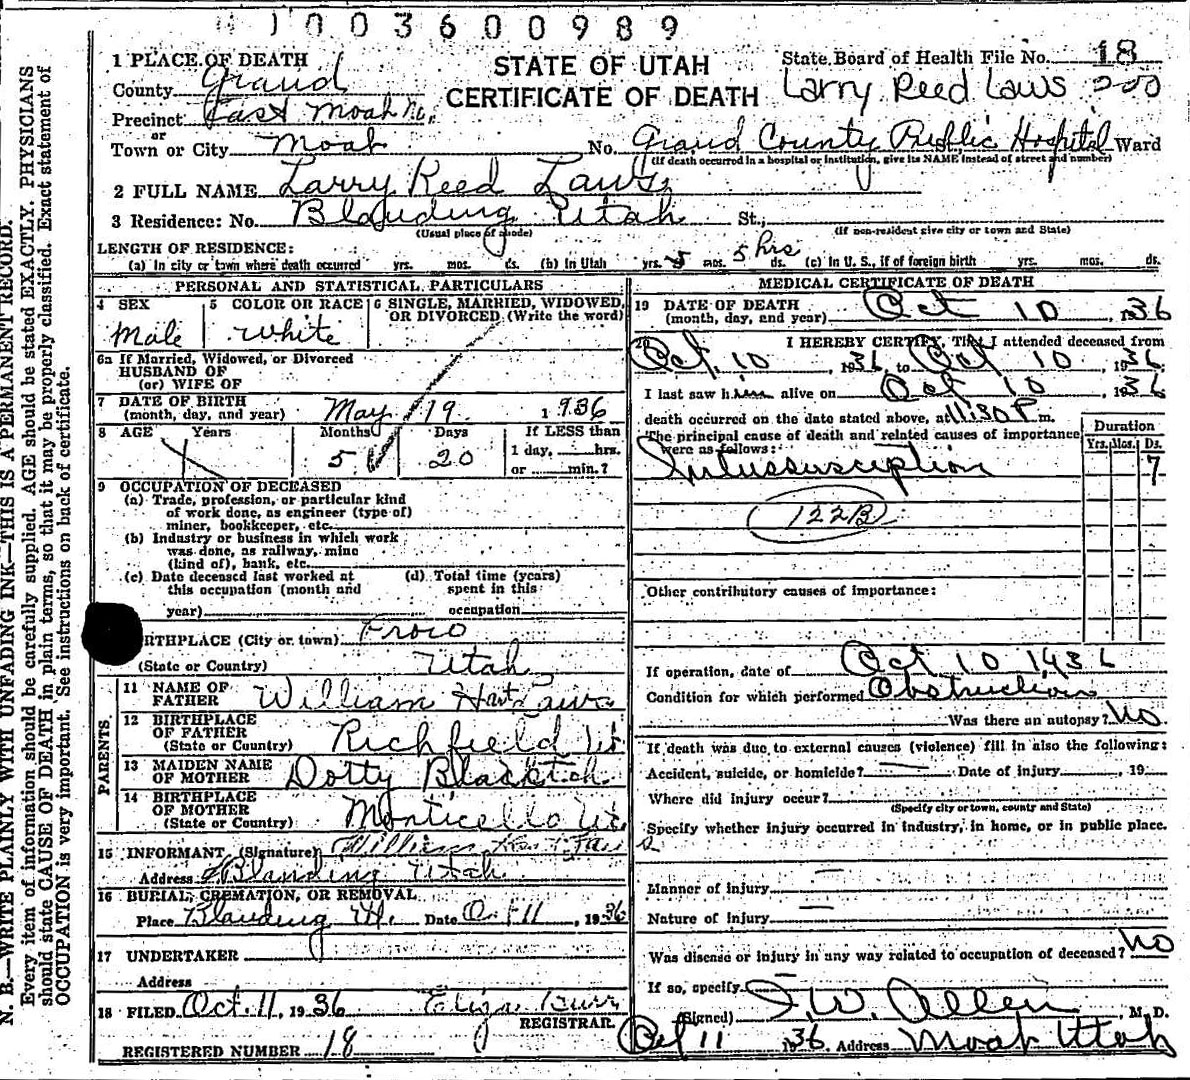 1003600989
STATE OF UTAH
CERTIFICATE OF DEATH
State Board of Health File No. 18
Larry Reed Laws
1 PLACE OF DEATH
County Grand
Precinct East Moab
or
Town or City Moab No. Grand County Public Hospital Ward
(If death occurred in a hospital or institution, give its NAME instead of street and number)
2 FULL NAME Larry Reed Laws
3 Residence: No. Blanding Utah St.,
(Usual place of abode) (If non-resident give city or town and State)
LENGTH OF RESIDENCE:
(a) In city or town where death occurred yrs. mos. ds. (b) In Utah yrs. 5 mos. 5 hrs ds. (c) In U. S., if of foreign birth yrs. mos. ds.
PERSONAL AND STATISTICAL PARTICULARS
4 SEX Male
5 COLOR OR RACE White
6 SINGLE, MARRIED, WIDOWED, OR DIVORCED (Write the word)
6a If Married, Widowed, or Divorced
HUSBAND OF
(or) WIFE OF
7 DATE OF BIRTH
(month, day, and year) May 19 1936
8 AGE Years Months Days If LESS than
5 20 1 day, hrs.
or min.?
9 OCCUPATION OF DECEASED
(a) Trade, profession, or particular kind
of work done, as engineer (type of)
miner, bookkeeper, etc.
(b) Industry or business in which work
was done, as railway, mine
(kind of), bank, etc.
(c) Date deceased last worked at (d) Total time (years)
this occupation (month and spent in this
year) occupation
BIRTHPLACE (City or town) Provo
(State or Country) Utah
PARENTS
11 NAME OF
FATHER William Laws
12 BIRTHPLACE
OF FATHER
(State or Country) Richfield Ut
13 MAIDEN NAME
OF MOTHER Dotty
14 BIRTHPLACE
OF MOTHER
(State or Country) Monticello Ut.
15 INFORMANT (Signature) William Laws
Address Blanding Utah
16 BURIAL, CREMATION, OR REMOVAL
Place Blanding Ut. Date Oct 11, 1936
17 UNDERTAKER
Address
18 FILED Oct. 11, 1936 Eliza Burr
REGISTRAR.
REGISTERED NUMBER 18
MEDICAL CERTIFICATE OF DEATH
19 DATE OF DEATH
(month, day, and year) Oct 10 1936
20 I HEREBY CERTIFY, That I attended deceased from
Oct. 10, 1936, to Oct 10, 1936
I last saw him alive on Oct 10, 1936
death occurred on the date stated above, at 11:30 P.m.
The principal cause of death and related causes of importance
were as follows:
Duration
Yrs. Mos. Ds.
Intussusception 7
122B
Other contributory causes of importance:
If operation, date of Oct 10 1936
Condition for which performed Obstruction
Was there an autopsy? No
If death was due to external causes (violence) fill in also the following:
Accident, suicide, or homicide? Date of injury, 19
Where did injury occur?
(Specify city or town, county and State)
Specify whether injury occurred in industry, in home, or in public place.
Manner of injury
Nature of injury
Was disease or injury in any way related to occupation of deceased? No
If so, specify
(Signed) I. W. Allen, M. D.
Oct 11 1936 Address Moab Utah
N. B.—WRITE PLAINLY WITH UNFADING INK—THIS IS A PERMANENT RECORD.
Every item of information should be carefully supplied. AGE should be stated EXACTLY. PHYSICIANS
should state CAUSE OF DEATH in plain terms, so that it may be properly classified. Exact statement of
OCCUPATION is very important. See instructions on back of certificate.